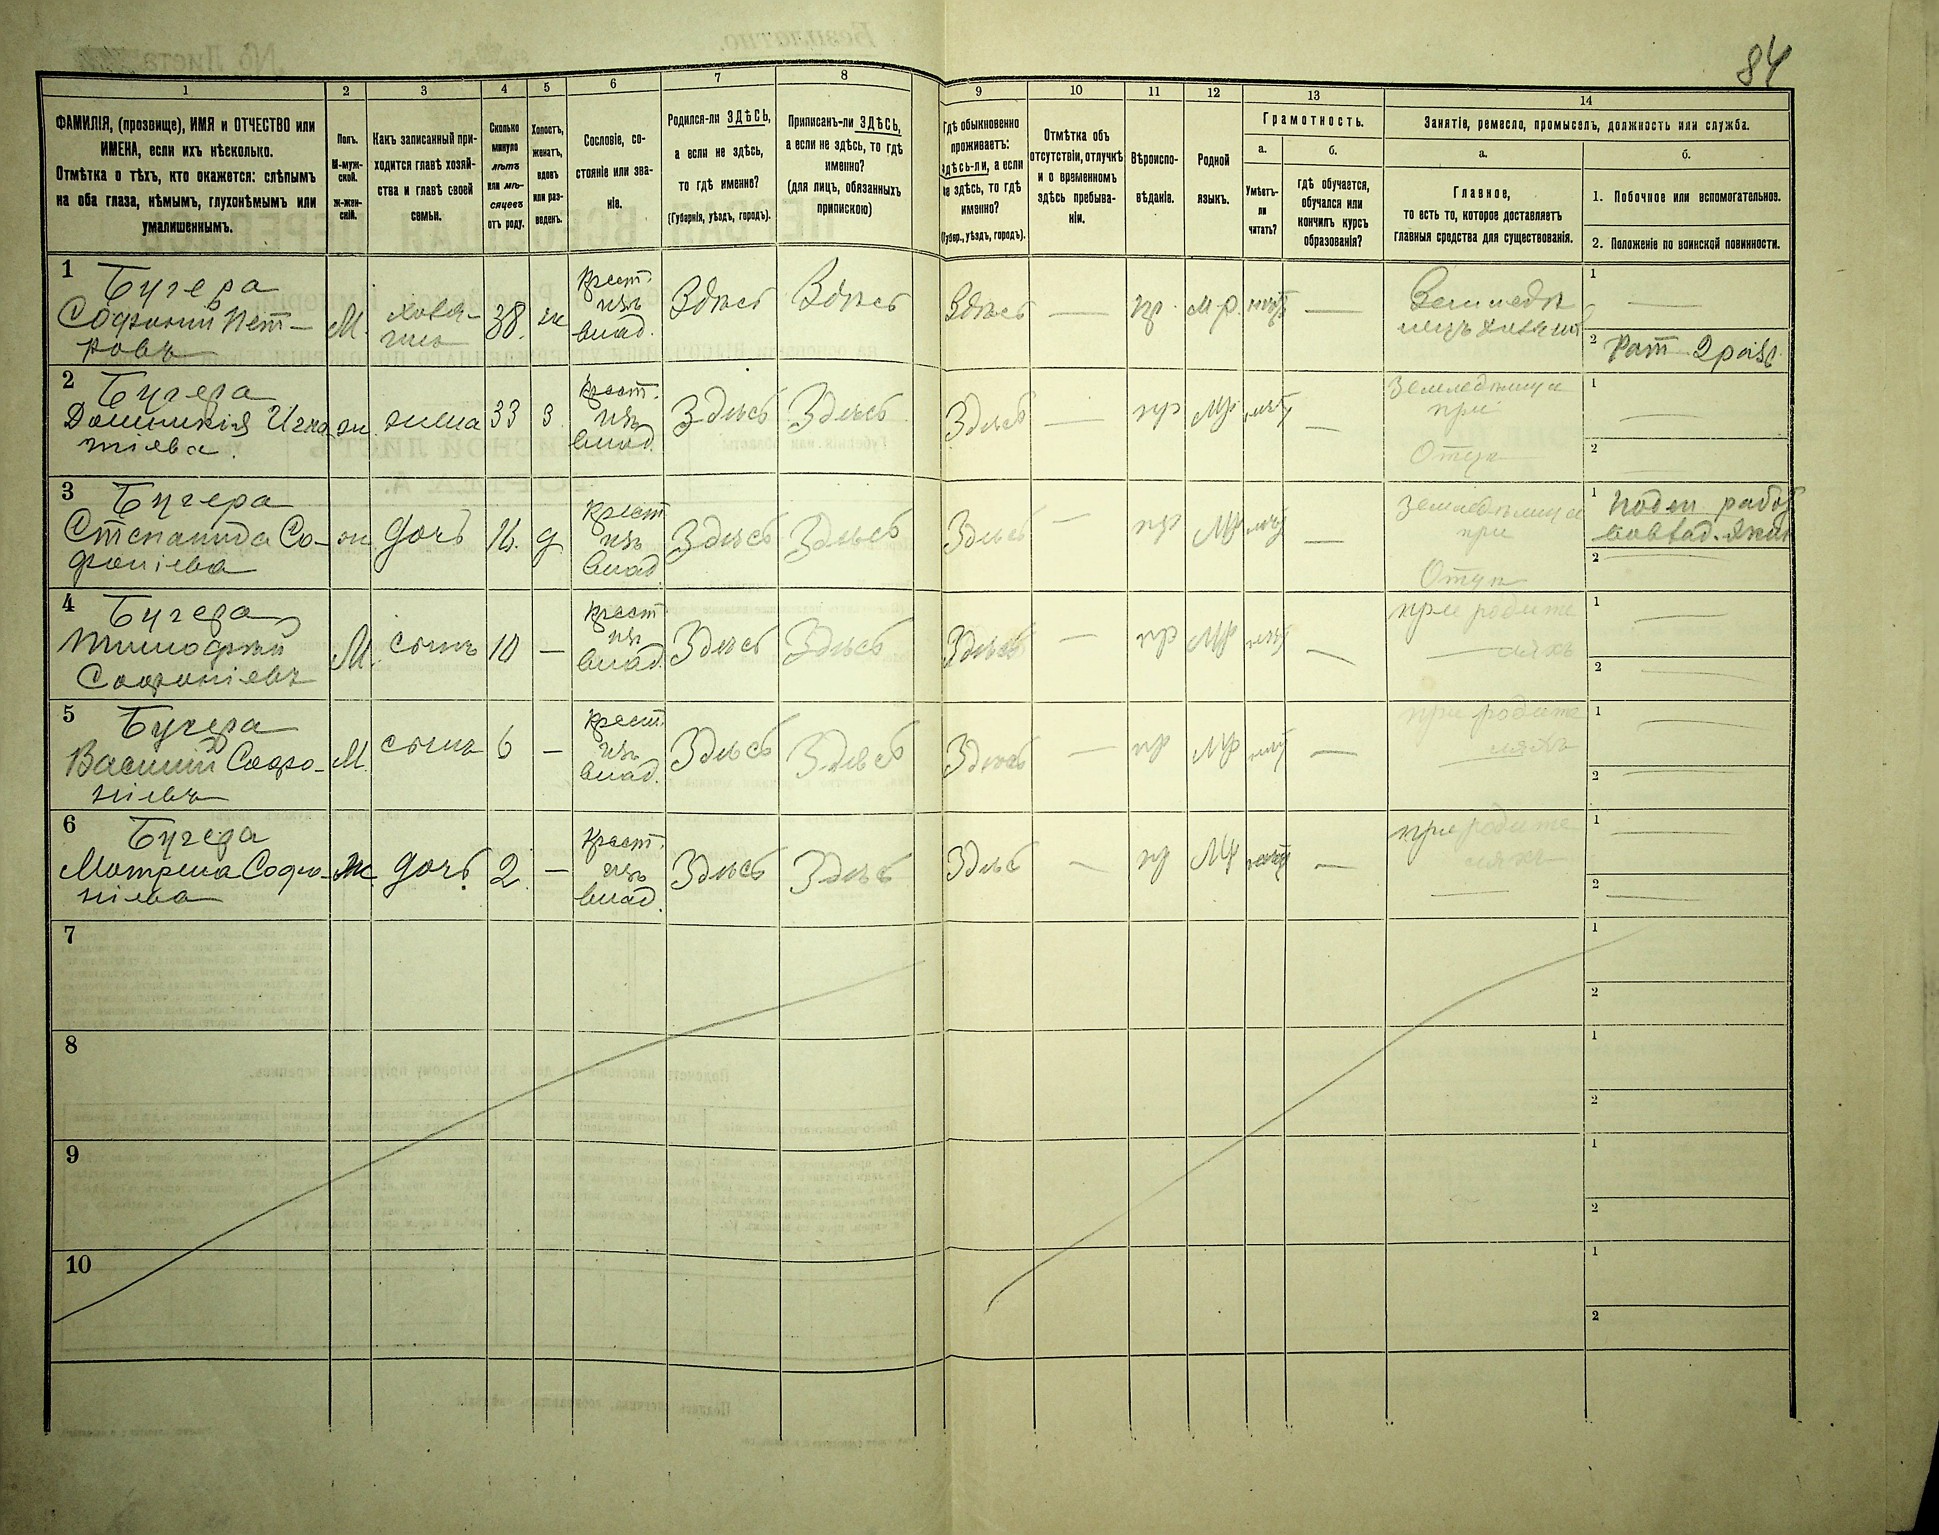 84
1 2 3 4 5 6 7 8 9 10 11 12 13 14
ФАМИЛІЯ, (прозвище), ИМЯ и ОТЧЕСТВО или
ИМЕНА, если ихъ нѣсколько.
Отмѣтка о тѣхъ, кто окажется: слѣпымъ
на оба глаза, нѣмымъ, глухонѣмымъ или
умалишеннымъ.
Полъ.
М-муж-
ской.
Ж-жен-
скій.
Какъ записанный при-
ходится главѣ хозяй-
ства и главѣ своей
семьи.
Сколько
минуло
лѣтъ
или мѣ-
сяцевъ
отъ роду.
Холостъ,
женатъ,
вдовъ
или раз-
веденъ.
Сословіе, со-
стояніе или зва-
ніе.
Родился-ли ЗДѢСЬ,
а если не здѣсь,
то гдѣ именно?
(Губернія, уѣздъ, городъ).
Приписанъ-ли ЗДѢСЬ,
а если не здѣсь, то гдѣ
именно?
(для лицъ, обязанныхъ
припискою)
Гдѣ обыкновенно
проживаетъ:
здѣсь-ли, а если
не здѣсь, то гдѣ
именно?
(Губер., уѣздъ, городъ).
Отмѣтка объ
отсутствіи, отлучкѣ
и о временномъ
здѣсь пребыва-
ніи.
Вѣроиспо-
вѣданіе.
Родной
языкъ.
Грамотность.
а.
Умѣетъ-
ли
читать?
б.
гдѣ обучается,
обучался или
кончилъ курсъ
образованія?
Занятіе, ремесло, промыселъ, должность или служба.
а.
Главное,
то есть то, которое доставляетъ
главныя средства для существованія.
б.
1. Побочное или вспомогательное.
2. Положеніе по воинской повинности.
1 Бугера
Софроній Пет-
ровъ
М. хозя-
инъ 38. ж
Крест.
изъ
влад.
Здѣсь Здѣсь Здѣсь — пр. м.р. нѣтъ —
1 —
2 Рат 2 разр.
2 Бугера
Доминикія Игна
тіева.
ж. жена 33 з
Крест.
изъ
влад.
Здѣсь Здѣсь Здѣсь — пр мр нѣтъ —
Земледѣлица
при
Отцѣ
1 —
2 —
3 Бугера
Степанида Со-
фоніева
ж. дочь 16. д
Крест
изъ
влад.
Здѣсь Здѣсь Здѣсь — пр мр нѣтъ —
Земледѣлица
при
Отцѣ
1 Поден работ
2 —
4 Бугера
Тимофѣй
Софоніевъ
М. сынъ 10 —
Крест
изъ
влад.
Здѣсь Здѣсь Здѣсь — пр мр нѣтъ —
при родите
ляхъ
1 —
2 —
5 Бугера
Василій Софо-
ніевъ
М. сынъ 6 —
Крест.
изъ
влад.
Здѣсь Здѣсь Здѣсь — пр мр нѣтъ —
при родите
ляхъ
1 —
2 —
6 Бугера
Матрена Софо-
ніева
Ж. дочь. 2. —
Крест.
изъ
влад.
Здѣсь Здѣсь Здѣсь — пр мр нѣтъ —
при родите
ляхъ
1 —
2 —
7
1
2
8
1
2
9
1
2
10
1
2